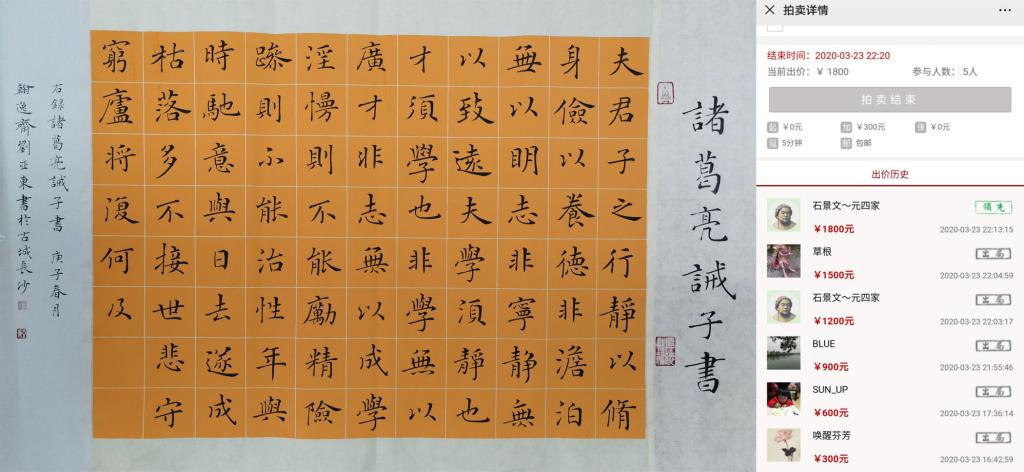 諸葛亮誡子書
夫君子之行靜以脩
身儉以養德非澹泊
無以明志非寧静無
以致遠夫學須靜也
才須學也非學無以
廣才非志無以成學
淫慢則不能勵精險
躁則不能治性年與
時馳意與日去遂成
枯落多不接世悲守
窮廬将復何及
右録諸葛亮誡子書 庚子春月
翰逸齋劉亚東書於古城長沙
拍卖详情
结束时间：2020-03-23 22:20
当前出价：￥ 1800 参与人数： 5人
拍卖结束
起 ￥0元 加 ￥300元 ￥0元
延 5分钟 邮 包邮
出价历史
石景文～元四家 领先
￥1800元 2020-03-23 22:13:15
草根 出局
￥1500元 2020-03-23 22:04:59
石景文～元四家 出局
￥1200元 2020-03-23 22:03:17
BLUE 出局
￥900元 2020-03-23 21:55:46
SUN_UP 出局
￥600元 2020-03-23 17:36:14
唤醒芬芳 出局
￥300元 2020-03-23 16:42:59